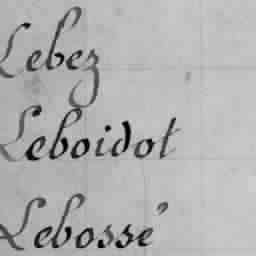 Lebez
Leboidot
Lebossé